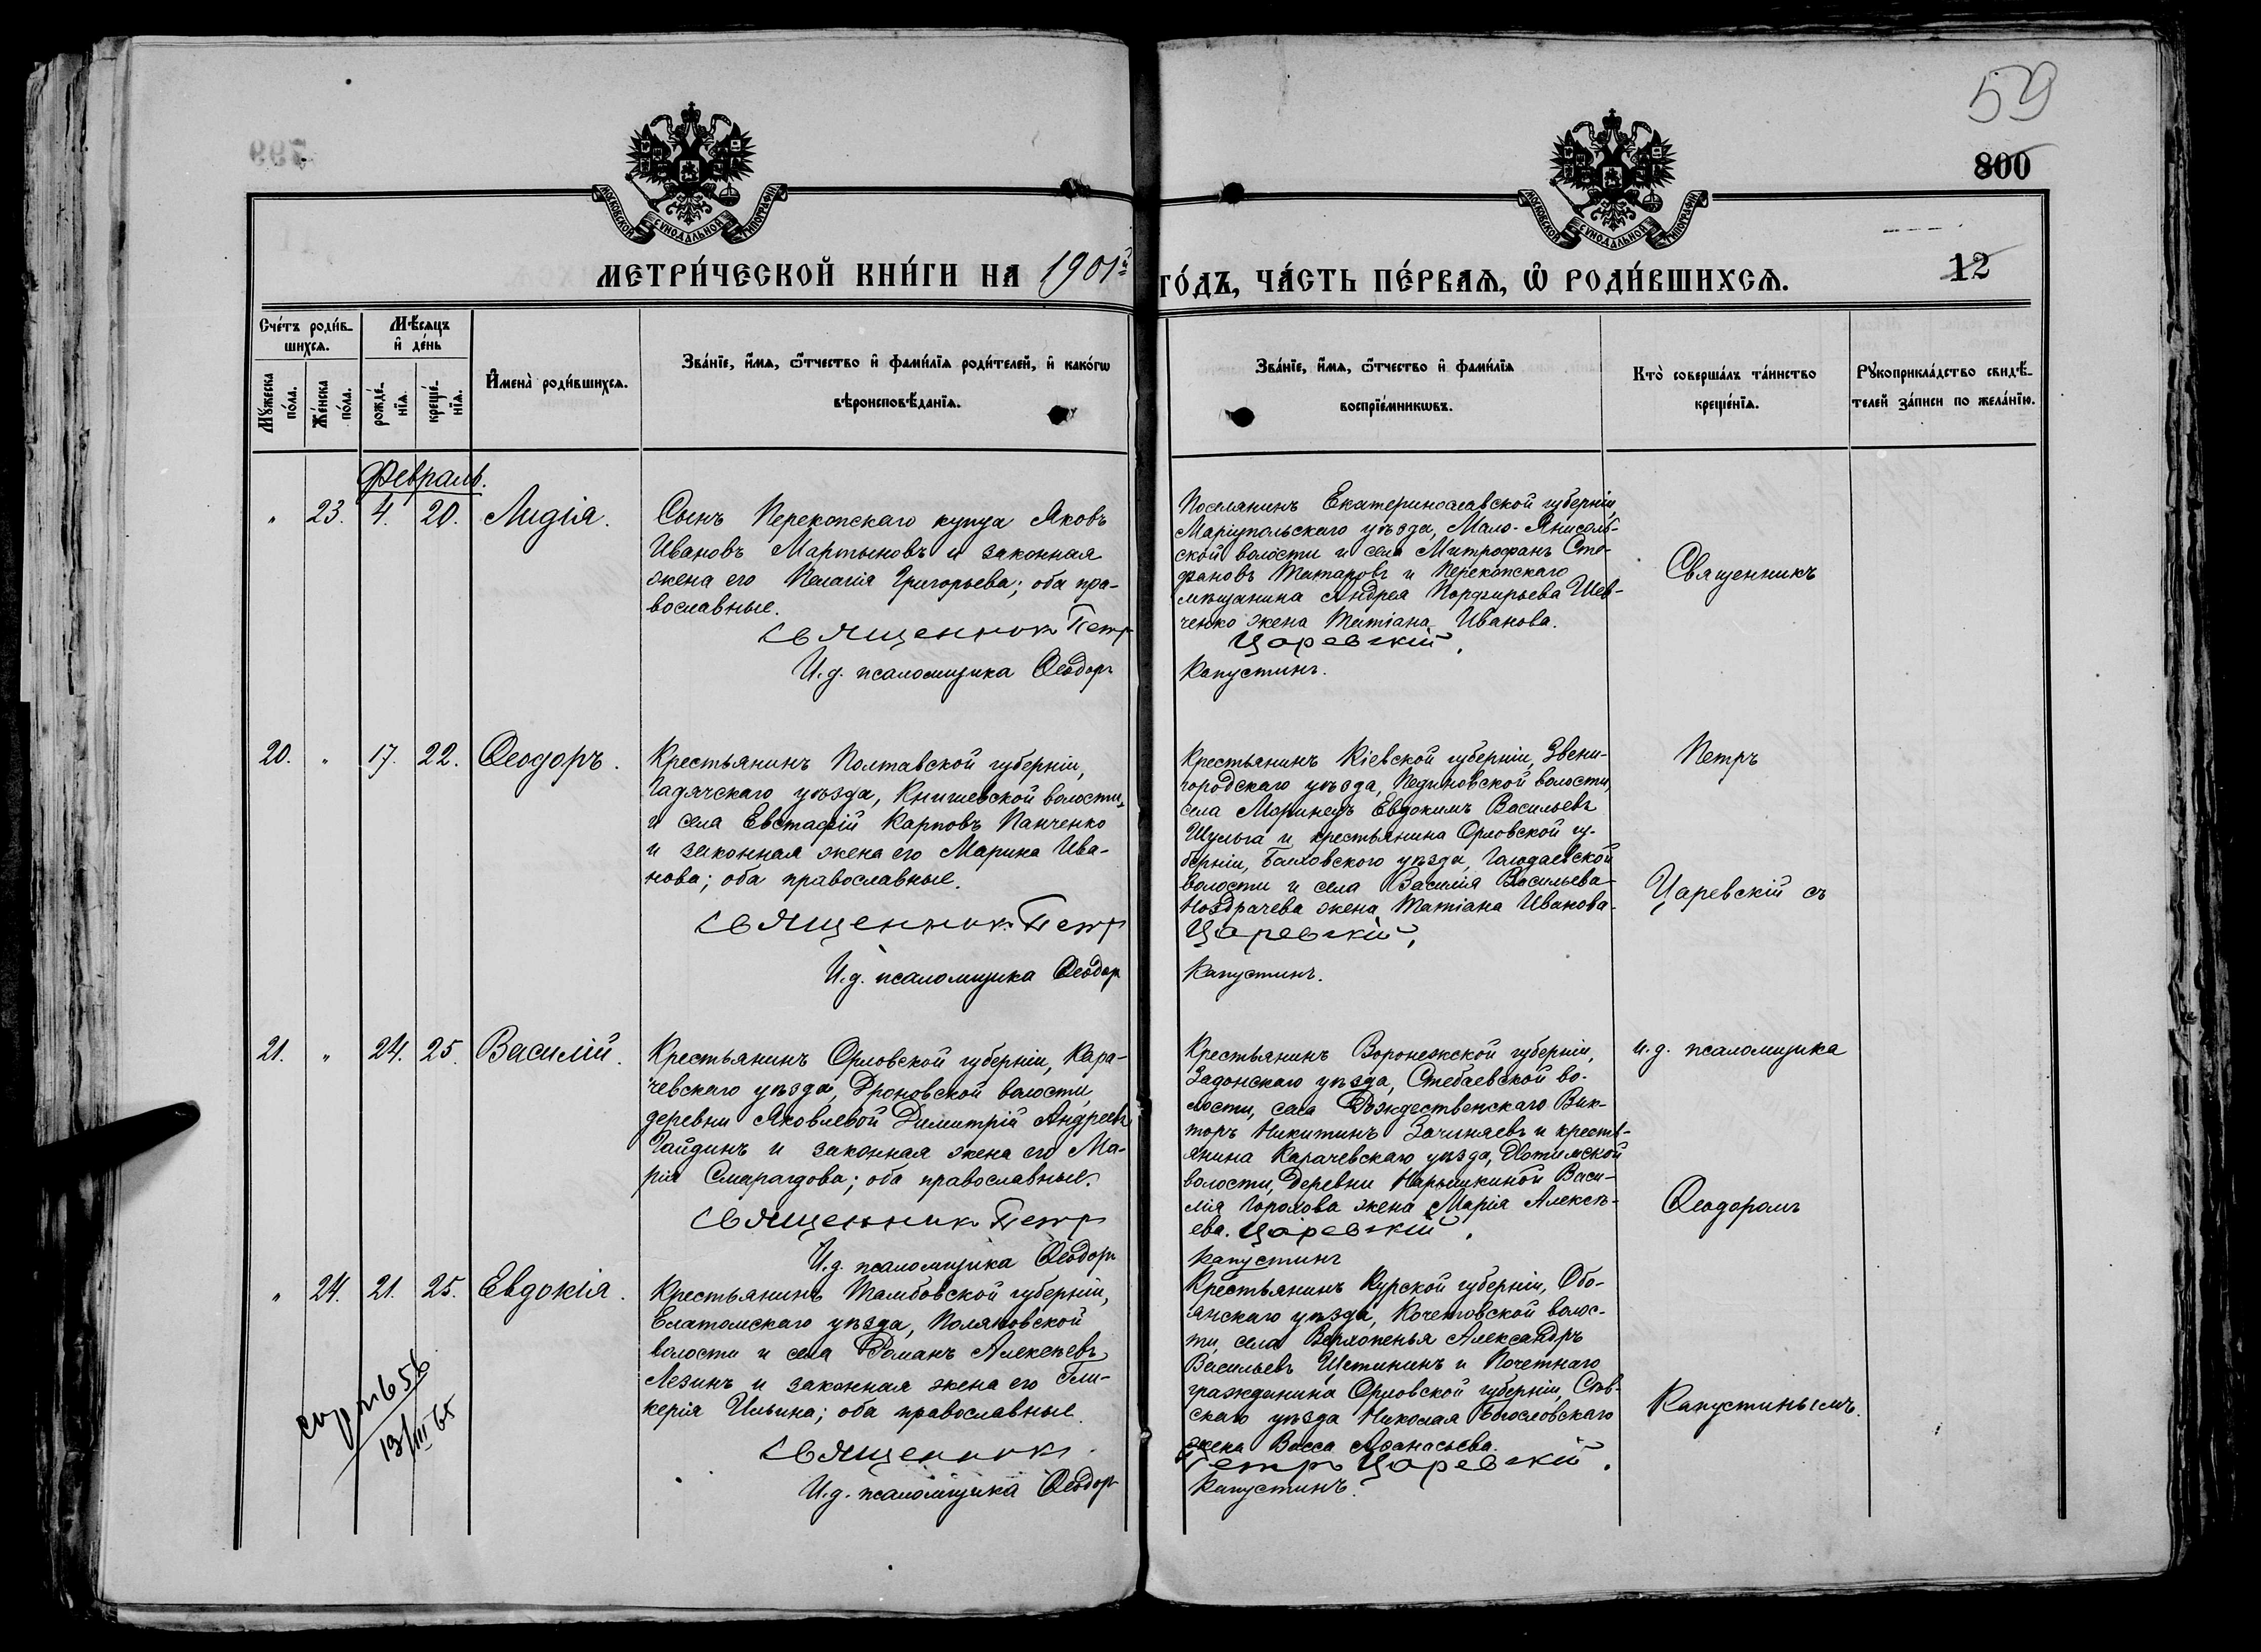 59
800
799
МОСКОВСКОЙ СѴНОДАЛЬНОЙ ТИПОГРАФІИ
МОСКОВСКОЙ СѴНОДАЛЬНОЙ ТИПОГРАФІИ
МЕТРИ́ЧЕСКОЙ КНИ́ГИ НА 1901й ГО́ДЪ, ЧА́СТЬ ПЕ́РВАѦ, Ѿ РОДИ́ВШИХСѦ.
12
Сче́тъ роди́в-
шихсѧ.
Мꙋ́жеска по́ла.
Же́нска по́ла.
Мѣ́сѧцъ
и҆ де́нь
рожде́-нїѧ.
креще́-нїѧ.
И҆мена̀ роди́вшихсѧ.
Зва́нїе, и҆́мѧ, ѻ҆́тчество и҆ фами́лїѧ роди́телей, и҆ како́гѡ
вѣроисповѣ́данїѧ.
Зва́нїе, и҆́мѧ, ѻ҆́тчество и҆ фами́лїѧ
воспрїе́мникѡвъ.
Кто̀ соверша́лъ та́инство
креще́нїѧ.
Рꙋкоприкла́дство свидѣ́-
телей за́писи по жела́нїю.
Февраль.
" 23. 4. 20. Лидія.
Сынъ Перекопскаго купца Яковъ
Ивановъ Мартыновъ и законная
жена его Пелагія Григорьева; оба пра-
вославные.
Священникъ Петр
И.д. псаломщика Ѳеодоръ
Поселянинъ Екатеринославской губерніи,
Маріупольскаго уѣзда, Мало-Янисоль-
ской волости и села Митрофанъ Сте-
фановъ Татаровъ и Перекопскаго
мѣщанина Андрея Порфирьева Шев-
ченко жена Татіана Иванова.
Царевскій.
Капустинъ.
Священникъ
20. " 17. 22. Ѳеодоръ.
Крестьянинъ Полтавской губерніи,
Гадячскаго уѣзда, Книшевской волости,
и села Евстафій Карповъ Панченко
и законная жена его Марина Ива-
нова; оба православные.
Священникъ Петр
И.д. псаломщика Ѳеодор
Крестьянинъ Кіевской губерніи, Звени-
городскаго уѣзда, Пединовской волости,
села Маринецъ Евдокимъ Васильевъ
Шульга и крестьянина Орловской гу-
берніи, Болховскаго уѣзда, Голодаевской
волости и села Василія Васильева
Ноздрачева жена Татіана Иванова.
Царевскій.
Капустинъ.
Петръ
Царевскій съ
21. " 24. 25. Василій.
Крестьянинъ Орловской губерніи, Кара-
чевскаго уѣзда, Дроновской волости,
деревни Яковлевой Димитрій Андреевъ
Гайдинъ и законная жена его Ма-
рія Смарагдова; оба православные.
Священник Петр
И.д. псаломщика Ѳеодоръ
Крестьянинъ Воронежской губерніи,
Задонскаго уѣзда, Стебаевской во-
лости, села Рождественскаго Вик-
торъ Никитинъ Зачиняевъ и кресть-
янина Карачевскаго уѣзда, Хотимской
волости, деревни Нарышкиной Васи-
лія Горохова жена Марія Алексѣ-
ева. Царевскій.
Капустинъ
и.д. псаломщика
Ѳеодоромъ
" 24. 21. 25. Евдокія.
Крестьянинъ Тамбовской губерніи,
Елатомскаго уѣзда, Поляковской
волости и села Романъ Алексѣевъ
Лезинъ и законная жена его Гли-
керія Ильина; оба православные.
Священникъ
И.д. псаломщика Ѳеодоръ
Крестьянинъ Курской губерніи, Обо-
янскаго уѣзда, Кочетовской волос-
ти, села Верхопенья Александръ
Васильевъ Щетининъ и Почетнаго
гражданина Орловской губерніи, Сѣв-
скаго уѣзда Николая Богословскаго
жена Васса Аѳанасьева.
Петръ Царевскій.
Капустинъ.
Капустинымъ.
656
13/III 65